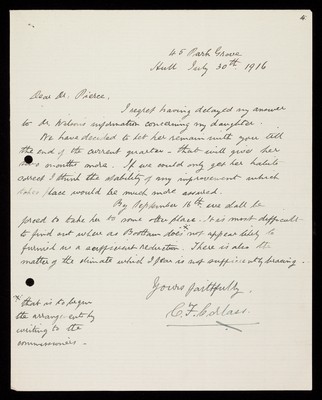 45 Park Grove
Hull July 30th 1916
Dear Dr. Pierce,
I regret having delayed my answer
to Dr information concerning my daughter.
We have decided to let her remain with you till
the end of the current quarter - that will give her
two months more. If we could only get her habits
correct I think the stability of any improvement which
takes place would be much more assured.
By September 16th we shall be
to take her to some other place. It is most difficult
to find out where as Bootham does not appear likely to
furnish us a sufficient reduction. There is also the
matter of the climate which I fear is not sufficiently bracing.
Yours faithfully,
C. F. Corlass.
* that is to begin
the arrangements by
writing to the
commissioners.